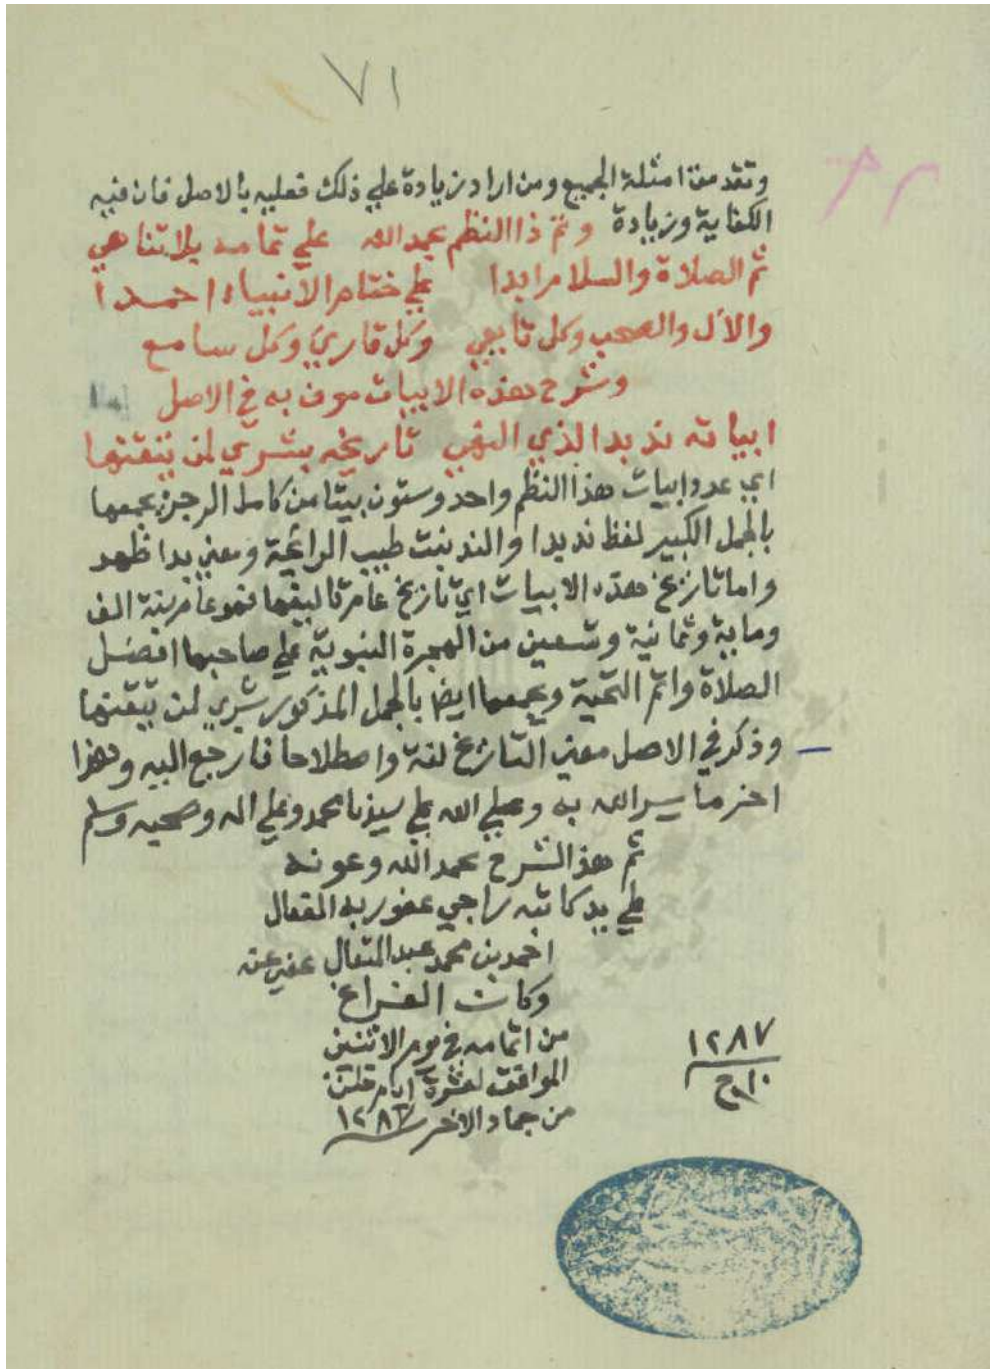 ٧١
وتقدمت امثلة الجميع ومن اراد زيادة علي ذلك فعليه بالاصل فان فيه
الكفاية وزيادة وتم ذا النظم بحمد الله علي تمامه بلا تناهي
ثم الصلاة والسلام ابدا علي ختام الانبياء احمدا
والآل والصحب وكل تابعي وكل قاريء وكل سامع
وشرح هذه الابيات موف به في الاصل
ابياته ند بدا لذي النهي تاريخه بشري لمن يتقنها
اي عدد ابيات هذا النظم واحد وستون بيتا من كامل الرجز يجمعها
بالجمل الكبير لفظ ند بدا والند نبت طيب الرائحة ومعني بدا ظهر
واما تاريخ هذه الابيات اي تاريخ عام تاليفها فهو عام سنة الف
وماية وثمانية وتسعين من الهجرة النبوية علي صاحبها افضل
الصلاة واتم التحية ويجمعها ايضا بالجمل المذكور بشري لمن يتقنها
وذكر في الاصل معني التاريخ لغة واصطلاحا فارجع اليه وهذا
اخر ما يسر الله به وصلي الله علي سيدنا محمد وعلي اله وصحبه وسلم
تم هذ الشرح بحمد الله وعونه
علي يد كاتبه راجي عفو ربه المتعال
احمد بن محمد عبد المتعال عفي عنه
وكان الفراغ
من اتمامه في يوم الاثنين
الموافق لعشرة ايام خلت
من جماد الاخر ١٢٨٧
١٢٨٧
١٠ ج